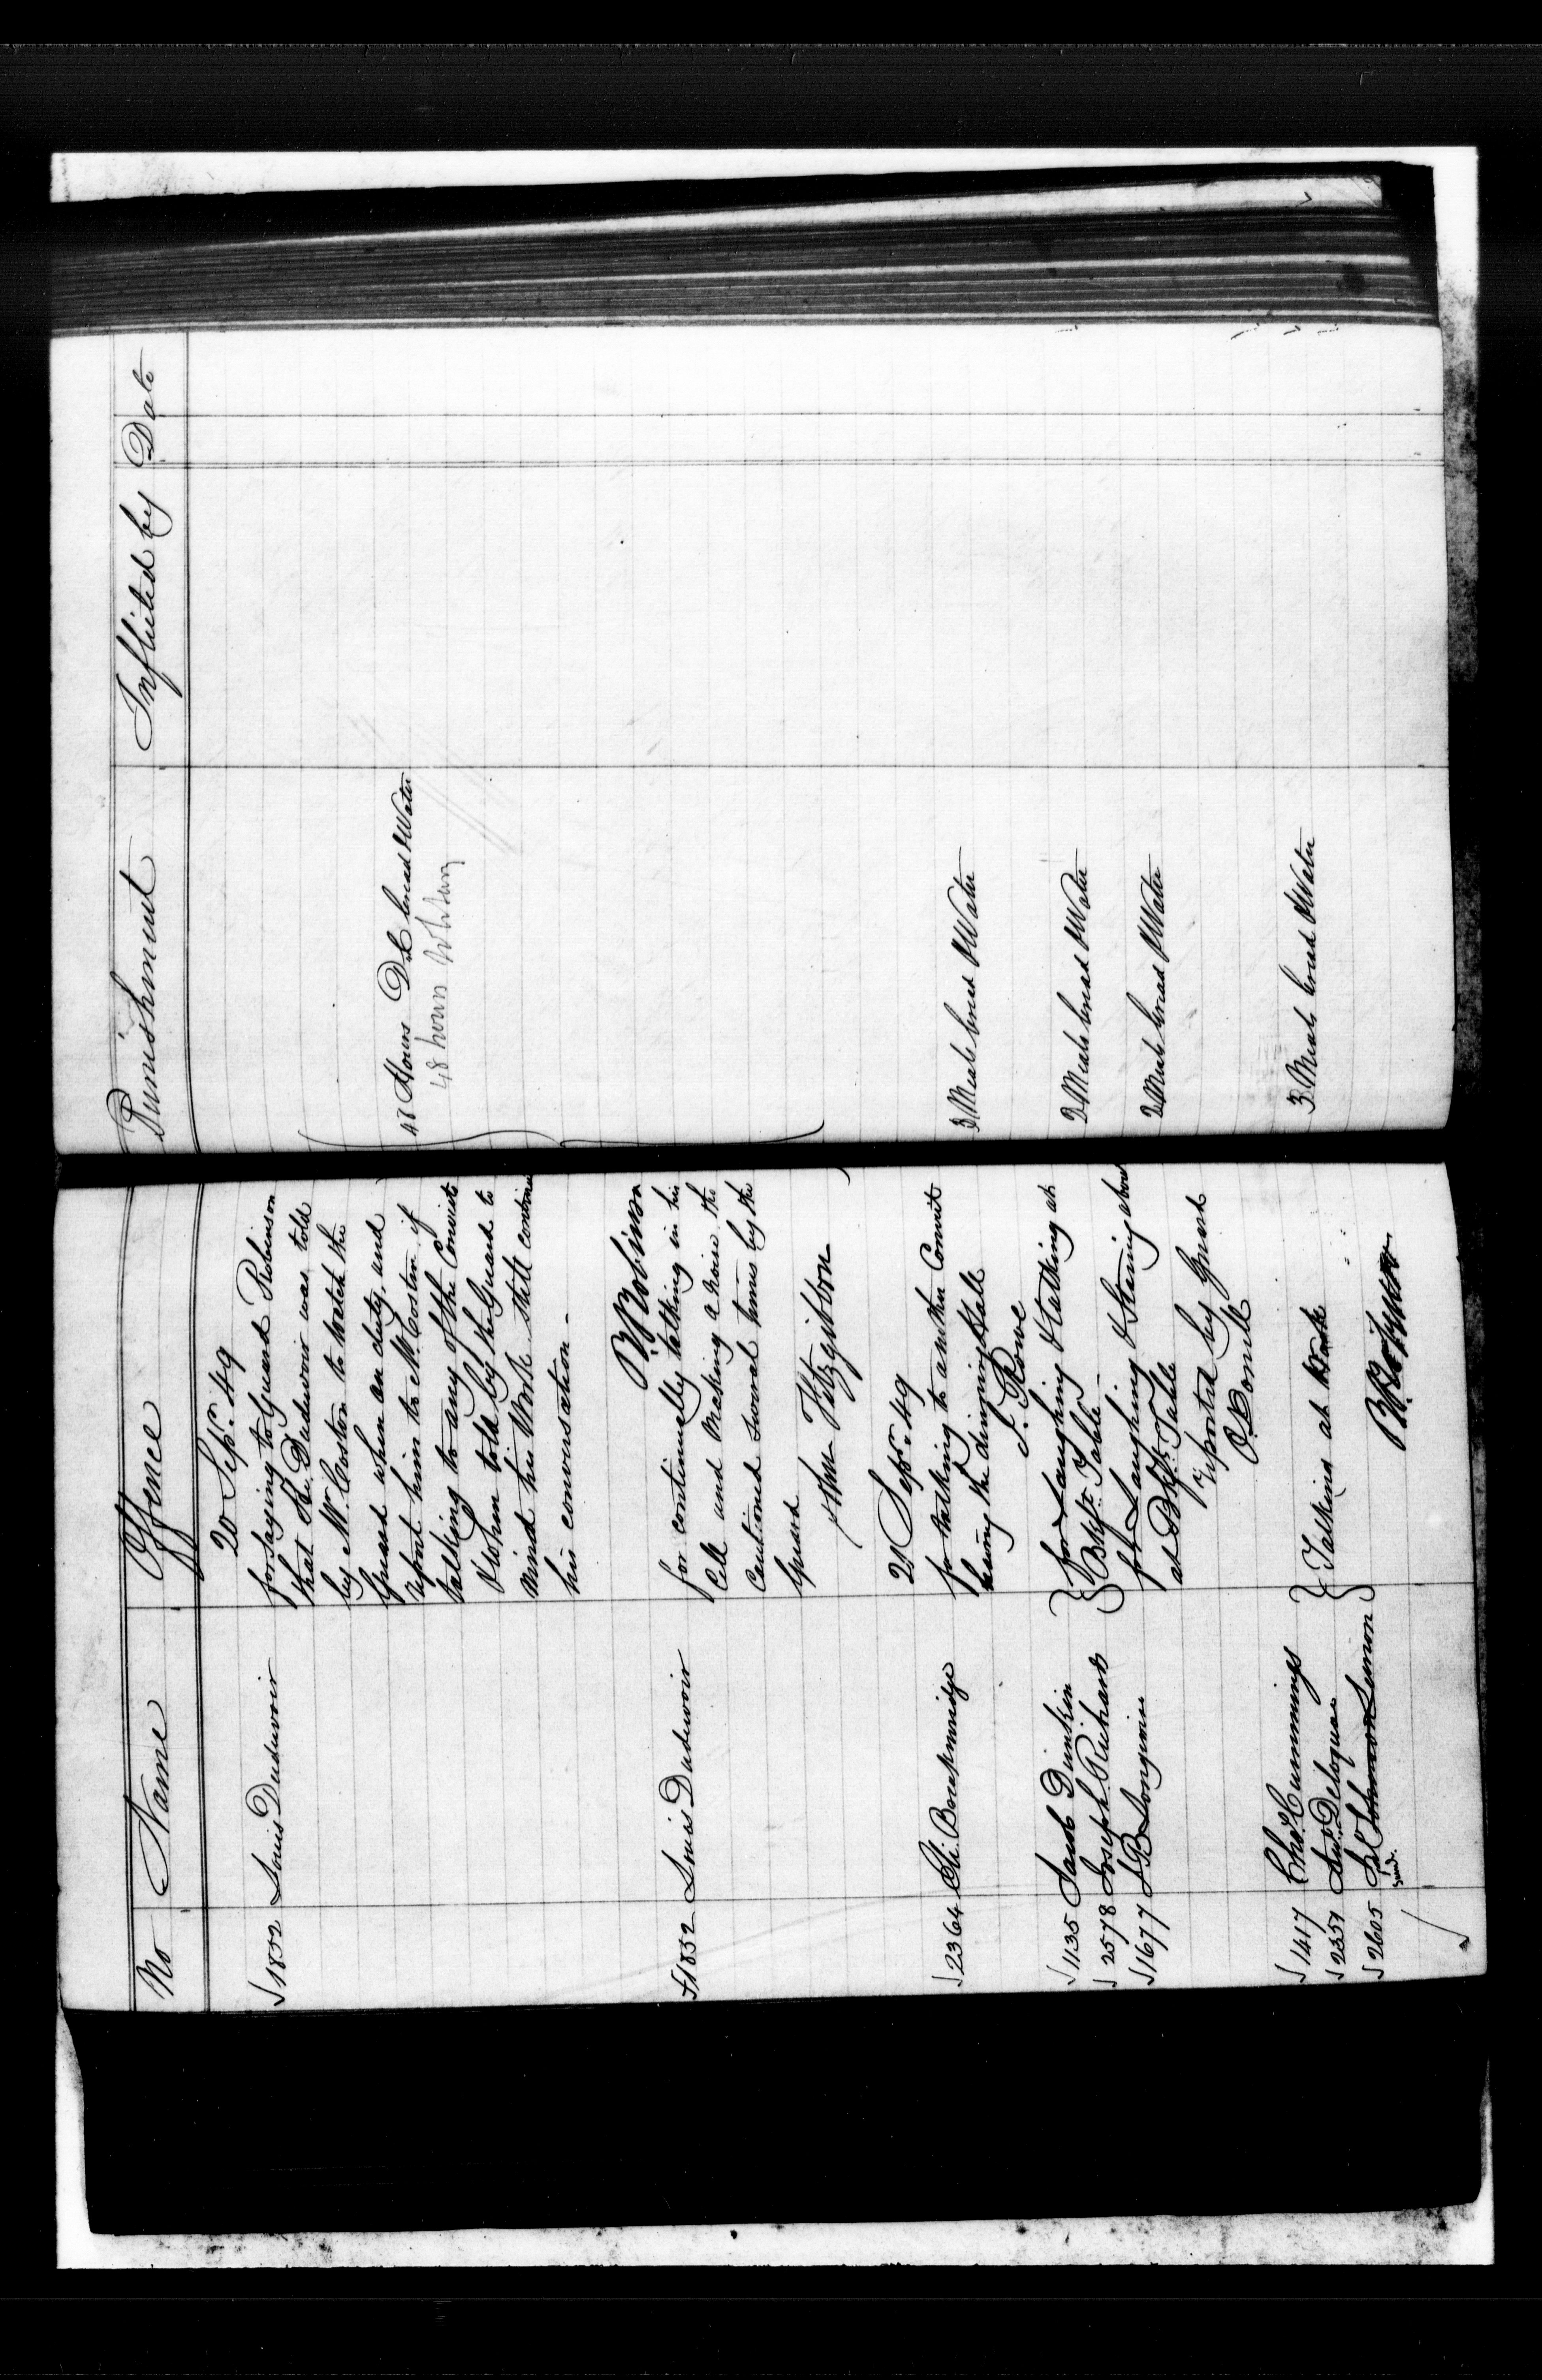 No Name Offence Punishment Inflicted by Date
20 Sepr. 49
√1852 Louis Duduvoir for saying to Guard Robinson
that he Duduvoir was told
by Mr. Coston to watch the
Guard when on duty, and
report him to Mr. Costen if
talking to any of the Convicts
& when told by the Guard to
mind his Work still continu
his conversation -
48 Hours Dk bread & Water
48 hours
B. Robinson
√1852 Louis Duduvoir for continually talking in his
Cell and Making a noise the
Cautioned several times by the
Guard
John Fitzgibbon
21 Sepr. 49
√2364 Eli. Breckinridge for talking to another Convict
leaving the dinning Hall
3 Meals bread & Water
J. Rowe
√1135 Jacob Dunkin } for Laughing & talking at
√2578 Joseph Richards } Bkft. Table -
2 Meals bread & Water
√1677 J B Longivin for Laughing & Staring about
at Bkft. Table
2 Meals bread & Water
reported by Guard
√1417 Chas. Cummings }
√2357 Ant. Deloquea } Talking at Work
√2605 Sol Johnson Simon }
3 Meals bread & Water
B. Robinson
√